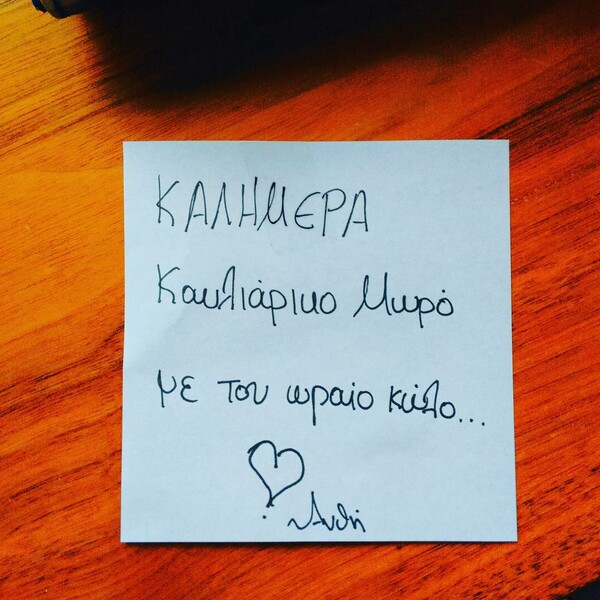 ΚΑΛΗΜΕΡΑ
Καυλιάρικο Μωρό
με τον ωραίο κώλο...
Ανθή